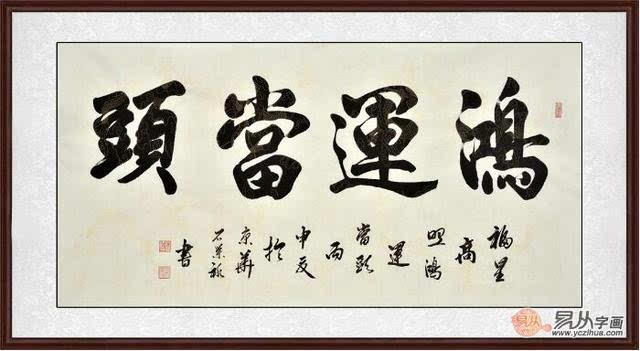 鴻運當頭
福星
高
照鴻
運
當頭
丙
申夏
於
京華
石荣禄
書
易从字画
www.yczihua.com